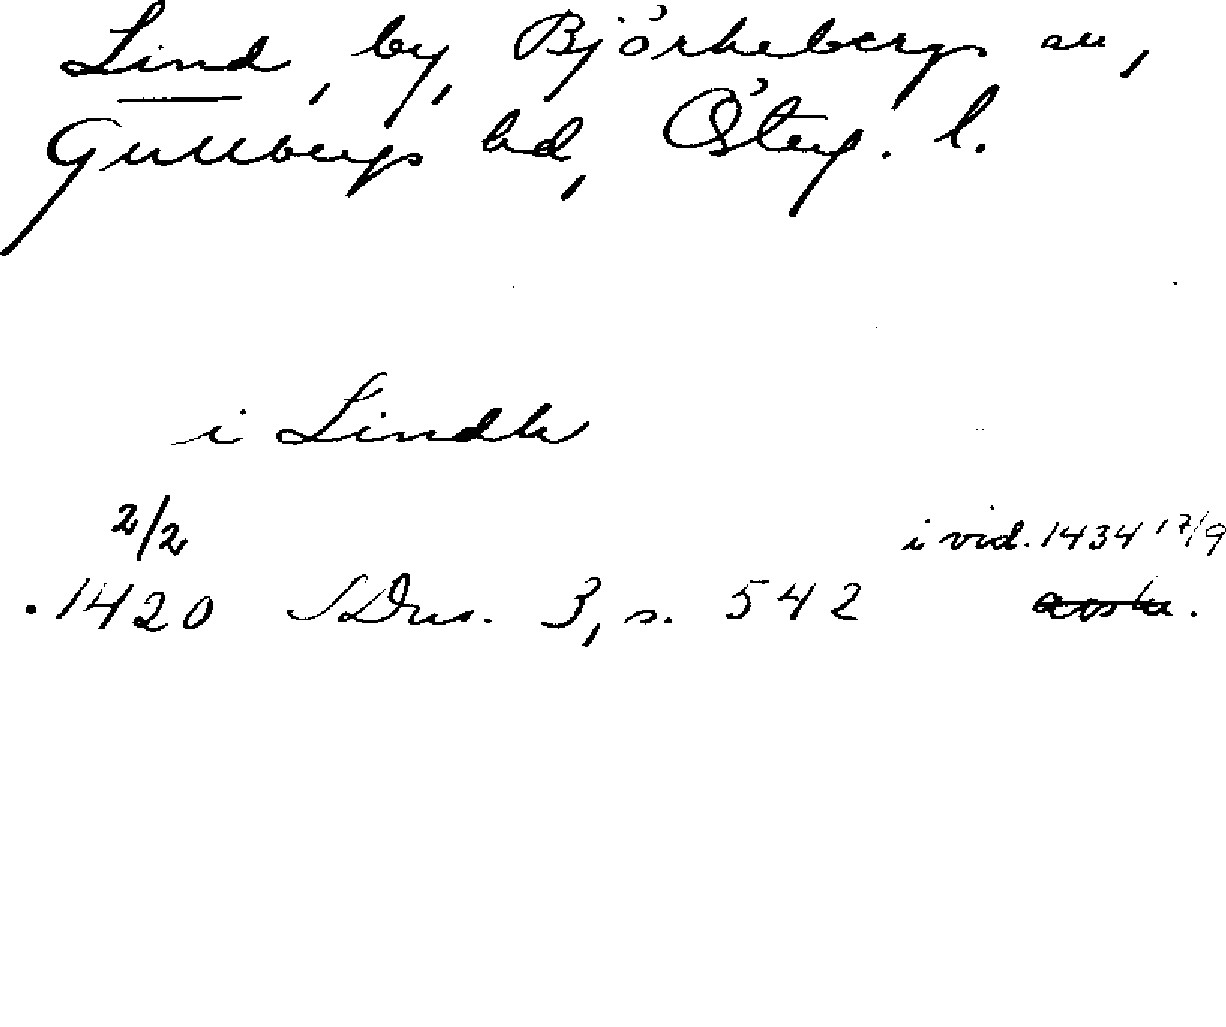 Lind, by, Björkebergs sn,
Gullbergs hd, Österg. l.
i Lindh
2/2
i vid. 1434 17/9
1420 SDns. 3, s. 542 avskr.